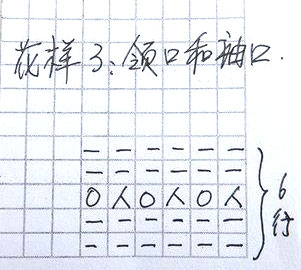 花样3：领口和袖口.
— — — — — —
— — — — — —
O 人 O 人 O 人
— — — — — —
— — — — — —
6行